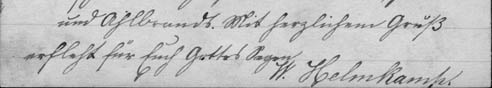 und Ahlbrandt. Mit herzlichem Gruß
erfleht für Euch Gottes Segen
W. Helmkamp.